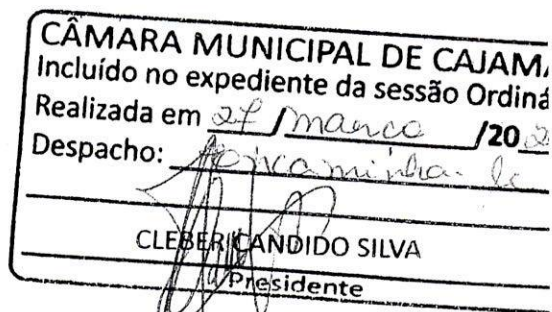 CÂMARA MUNICIPAL DE CAJAMA
Incluído no expediente da sessão Ordiná
Realizada em 27 / março /20 2
Despacho:
CLEBER CANDIDO SILVA
Presidente